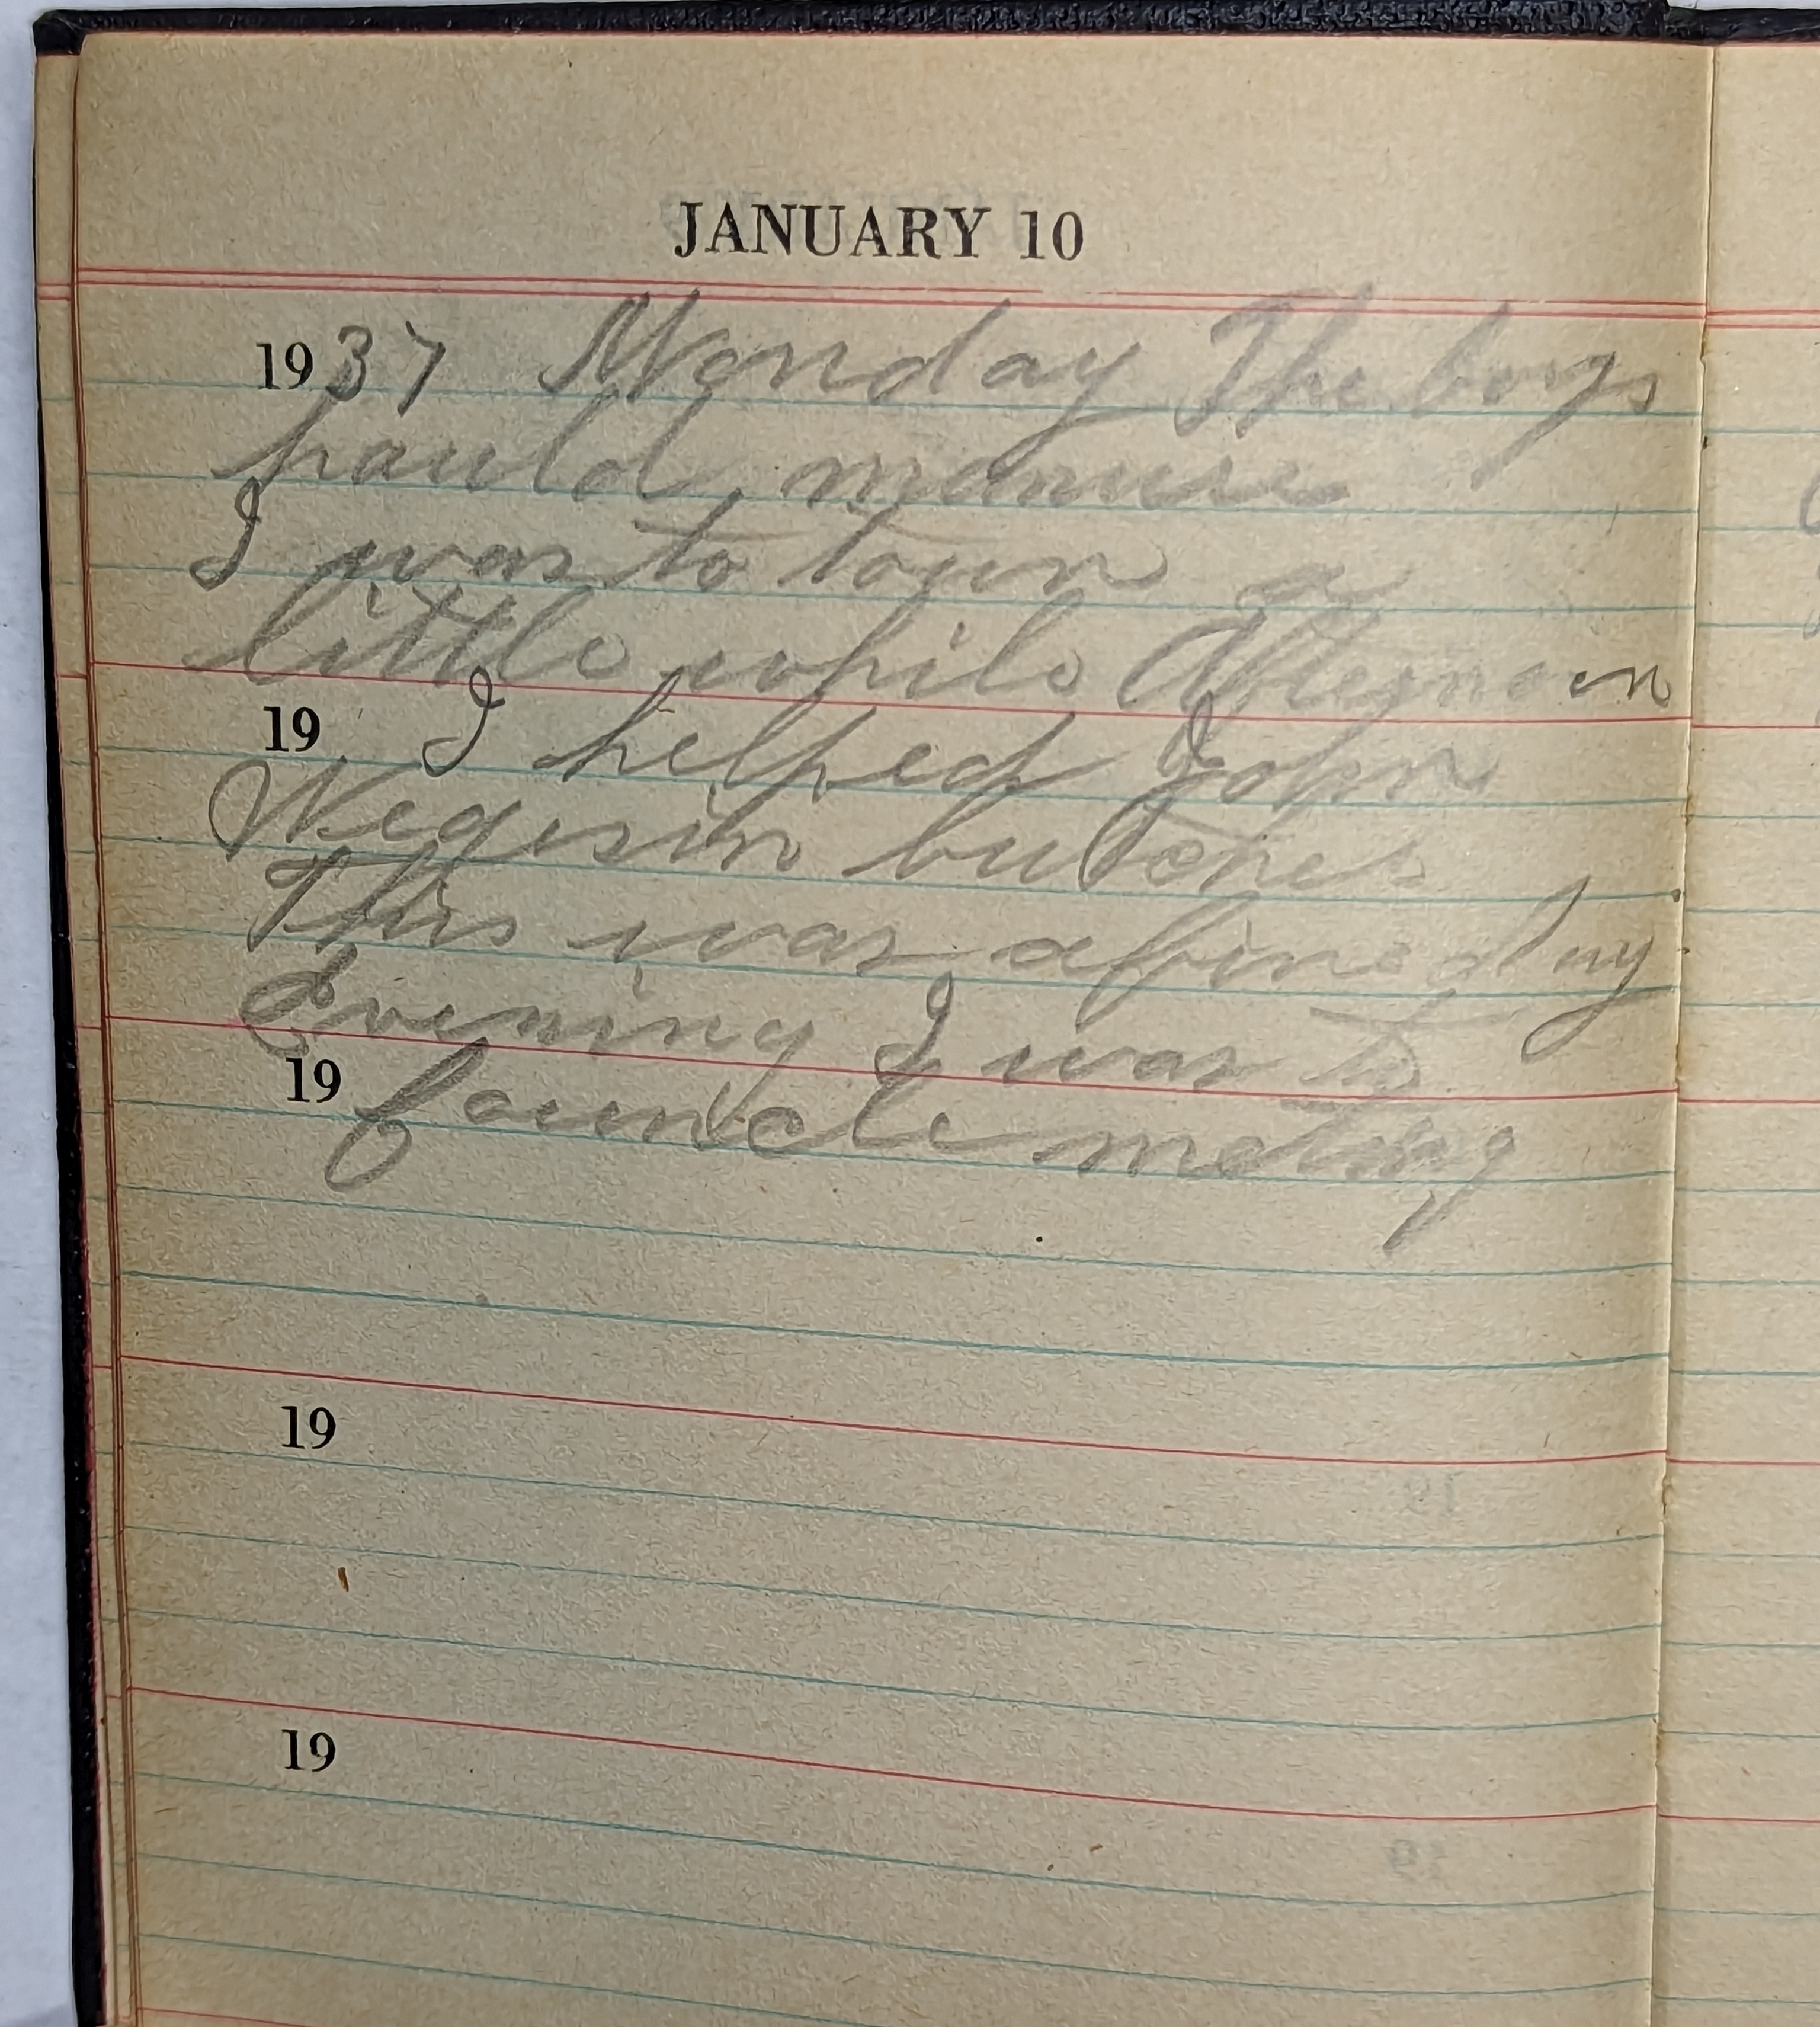 JANUARY 10
1937 Monday The boys
hauld manure
I was to town a
little while Afternoon
19 I helped John
butcher
This was a fine day
Evening I was to
19 meting
19
19